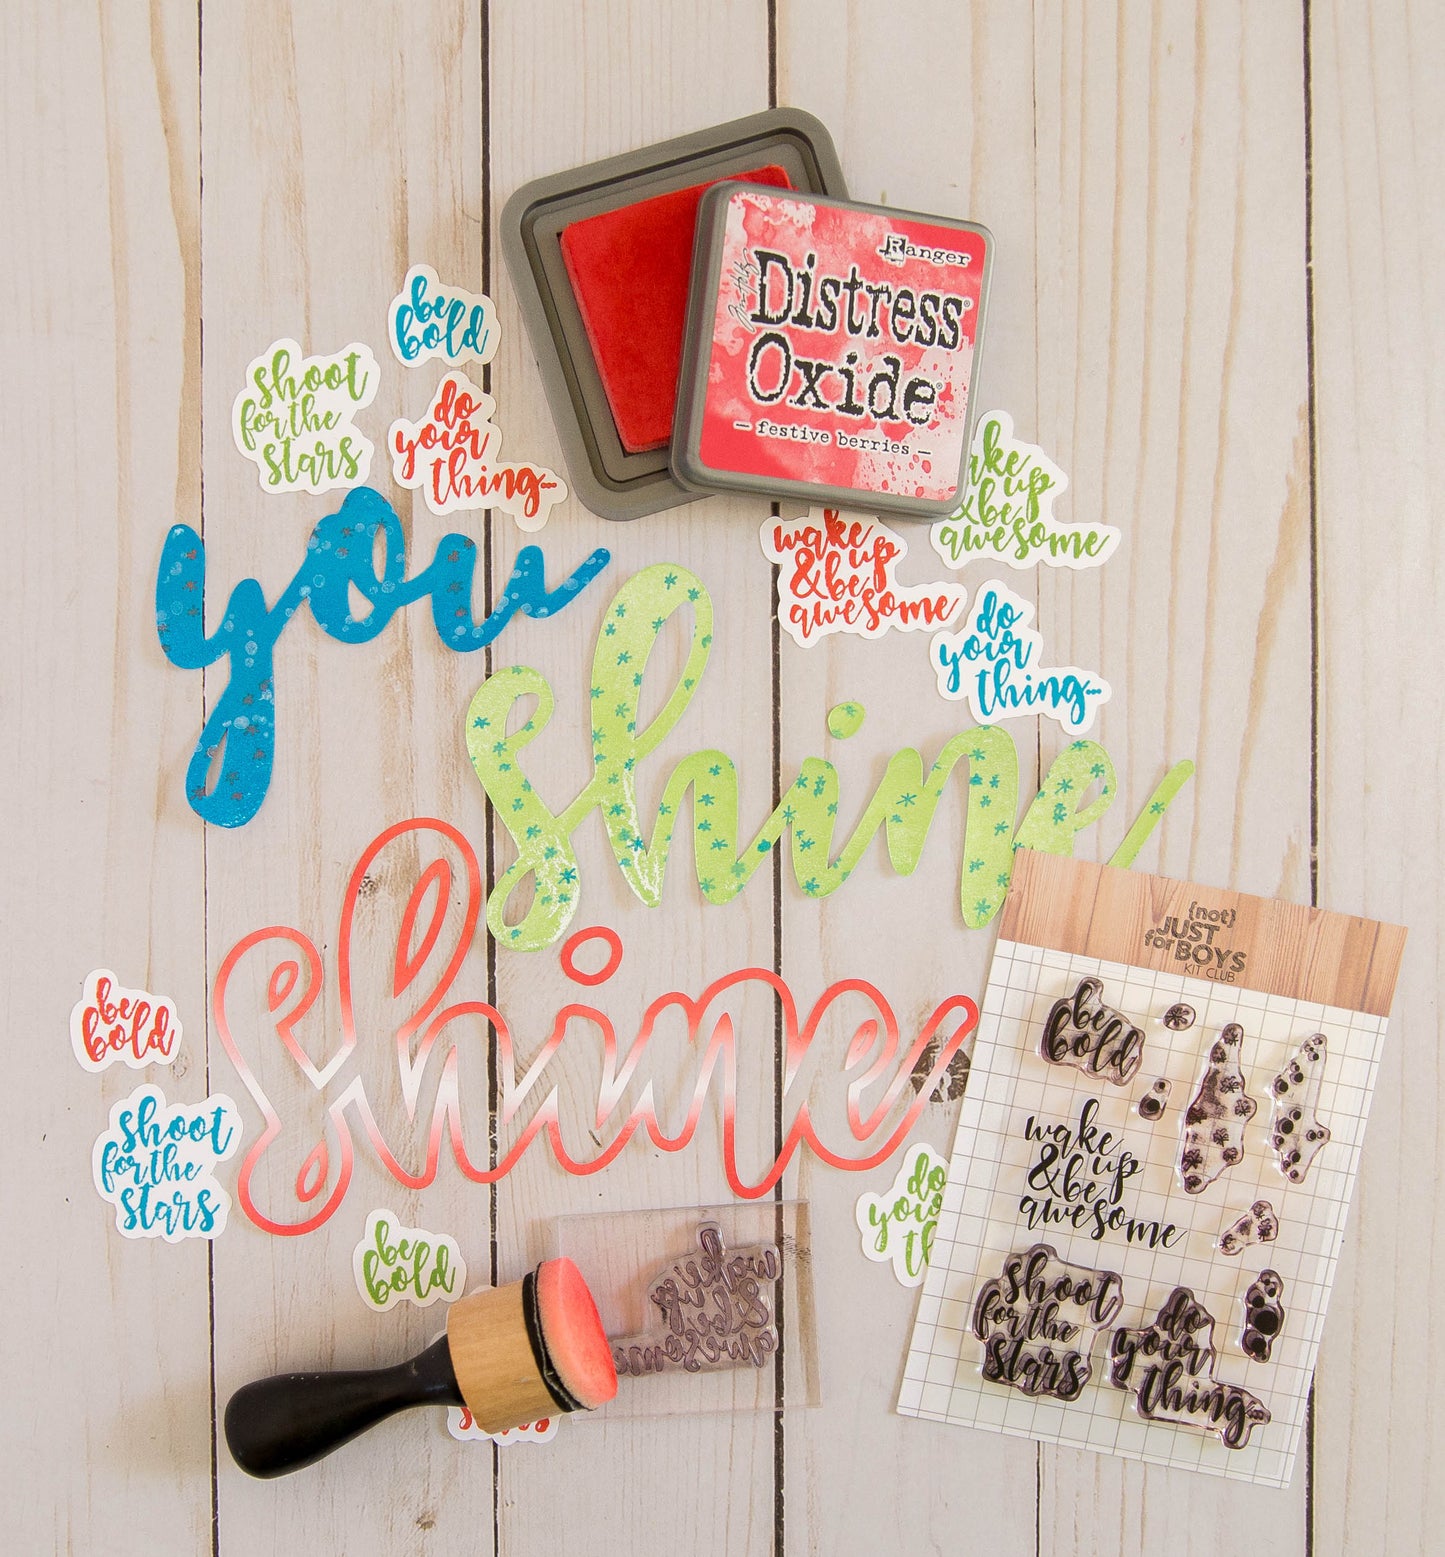 Ranger
Tim Holtz
Distress®
Oxide®
— festive berries —
be
bold
shoot
for the
stars
do
your
thing...
wake
up
& be
awesome
wake
up
& be
awesome
do
your
thing...
you
shine
shine
be
bold
shoot
for the
stars
be
bold
do
your
wake
up
& be
awesome
{not}
JUST
for BOYS
KIT CLUB
be
bold
wake
up
& be
awesome
shoot
for the
stars
do
your
thing...